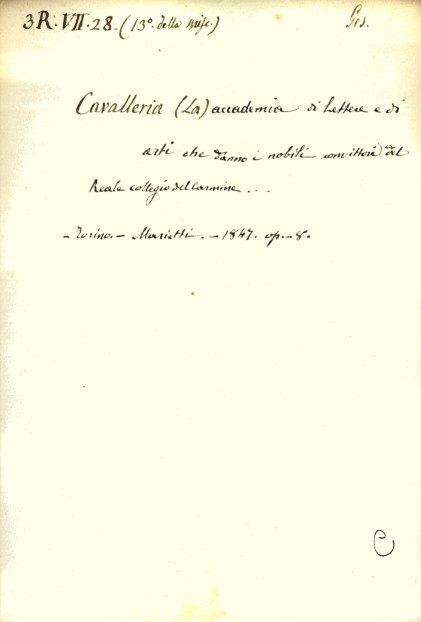 3R. VII. 28. (13º. della misc.) Ges.
Cavalleria (La) accademia di Lettere e di
arti che danno i nobili convittori del
Reale collegio del Carmine ...
- Torino. - Marietti. - 1847. op. - 8º.
C